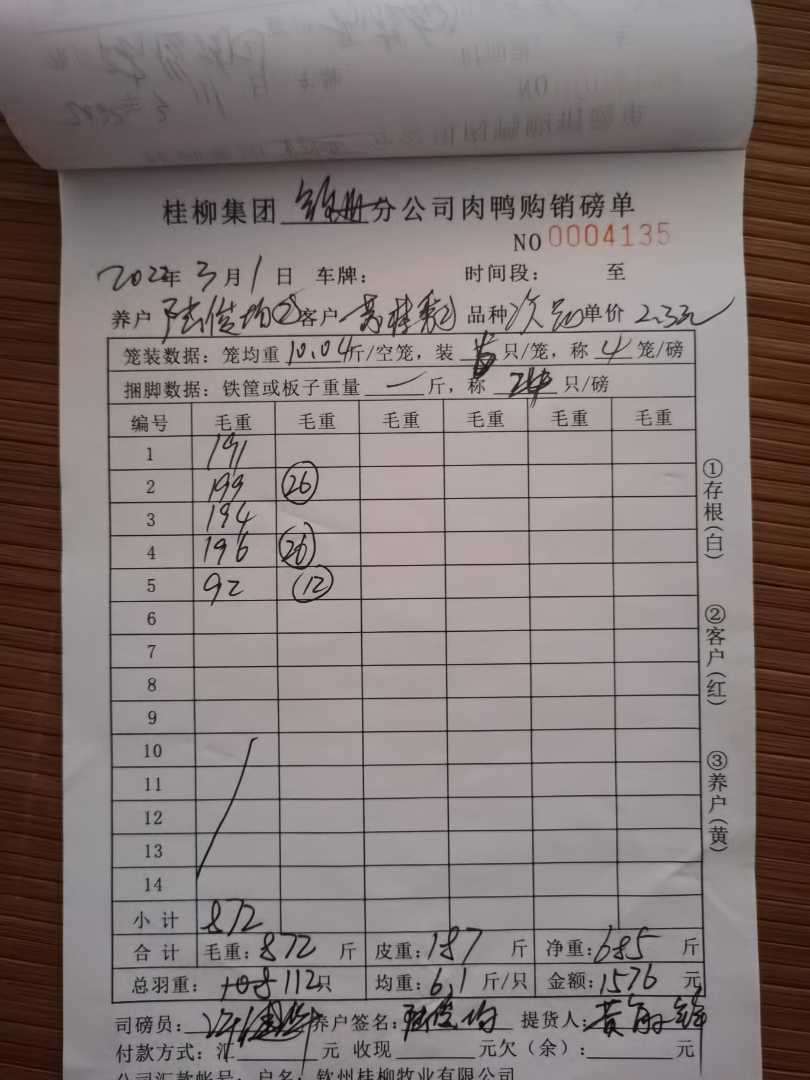 桂柳集团 钦州分公司肉鸭购销磅单
NO 0004135
2022年 3月 1日 车牌: 时间段: 至
养户 陆俊均② 客户 黄桂 品种 次 单价 2.3元
笼装数据: 笼均重 10.04斤/空笼, 装 只/笼, 称 4 笼/磅
捆脚数据: 铁筐或板子重量 一 斤, 称 只/磅
编号 毛重 毛重 毛重 毛重 毛重 毛重
1 191
2 199 26
3 194
4 196 26
5 92 12
6
7
8
9
10
11
12
13
14
小计 872
合计 毛重: 872 斤 皮重: 187 斤 净重: 685 斤
总羽重: 108 112只 均重: 6.1 斤/只 金额: 1576 元
司磅员: 养户签名: 陆俊均 提货人: 黄
付款方式: 汇 元 收现 元欠(余): 元
公司汇款帐号: 户名: 钦州桂柳牧业有限公司
①存根(白)
②客户(红)
③养户(黄)